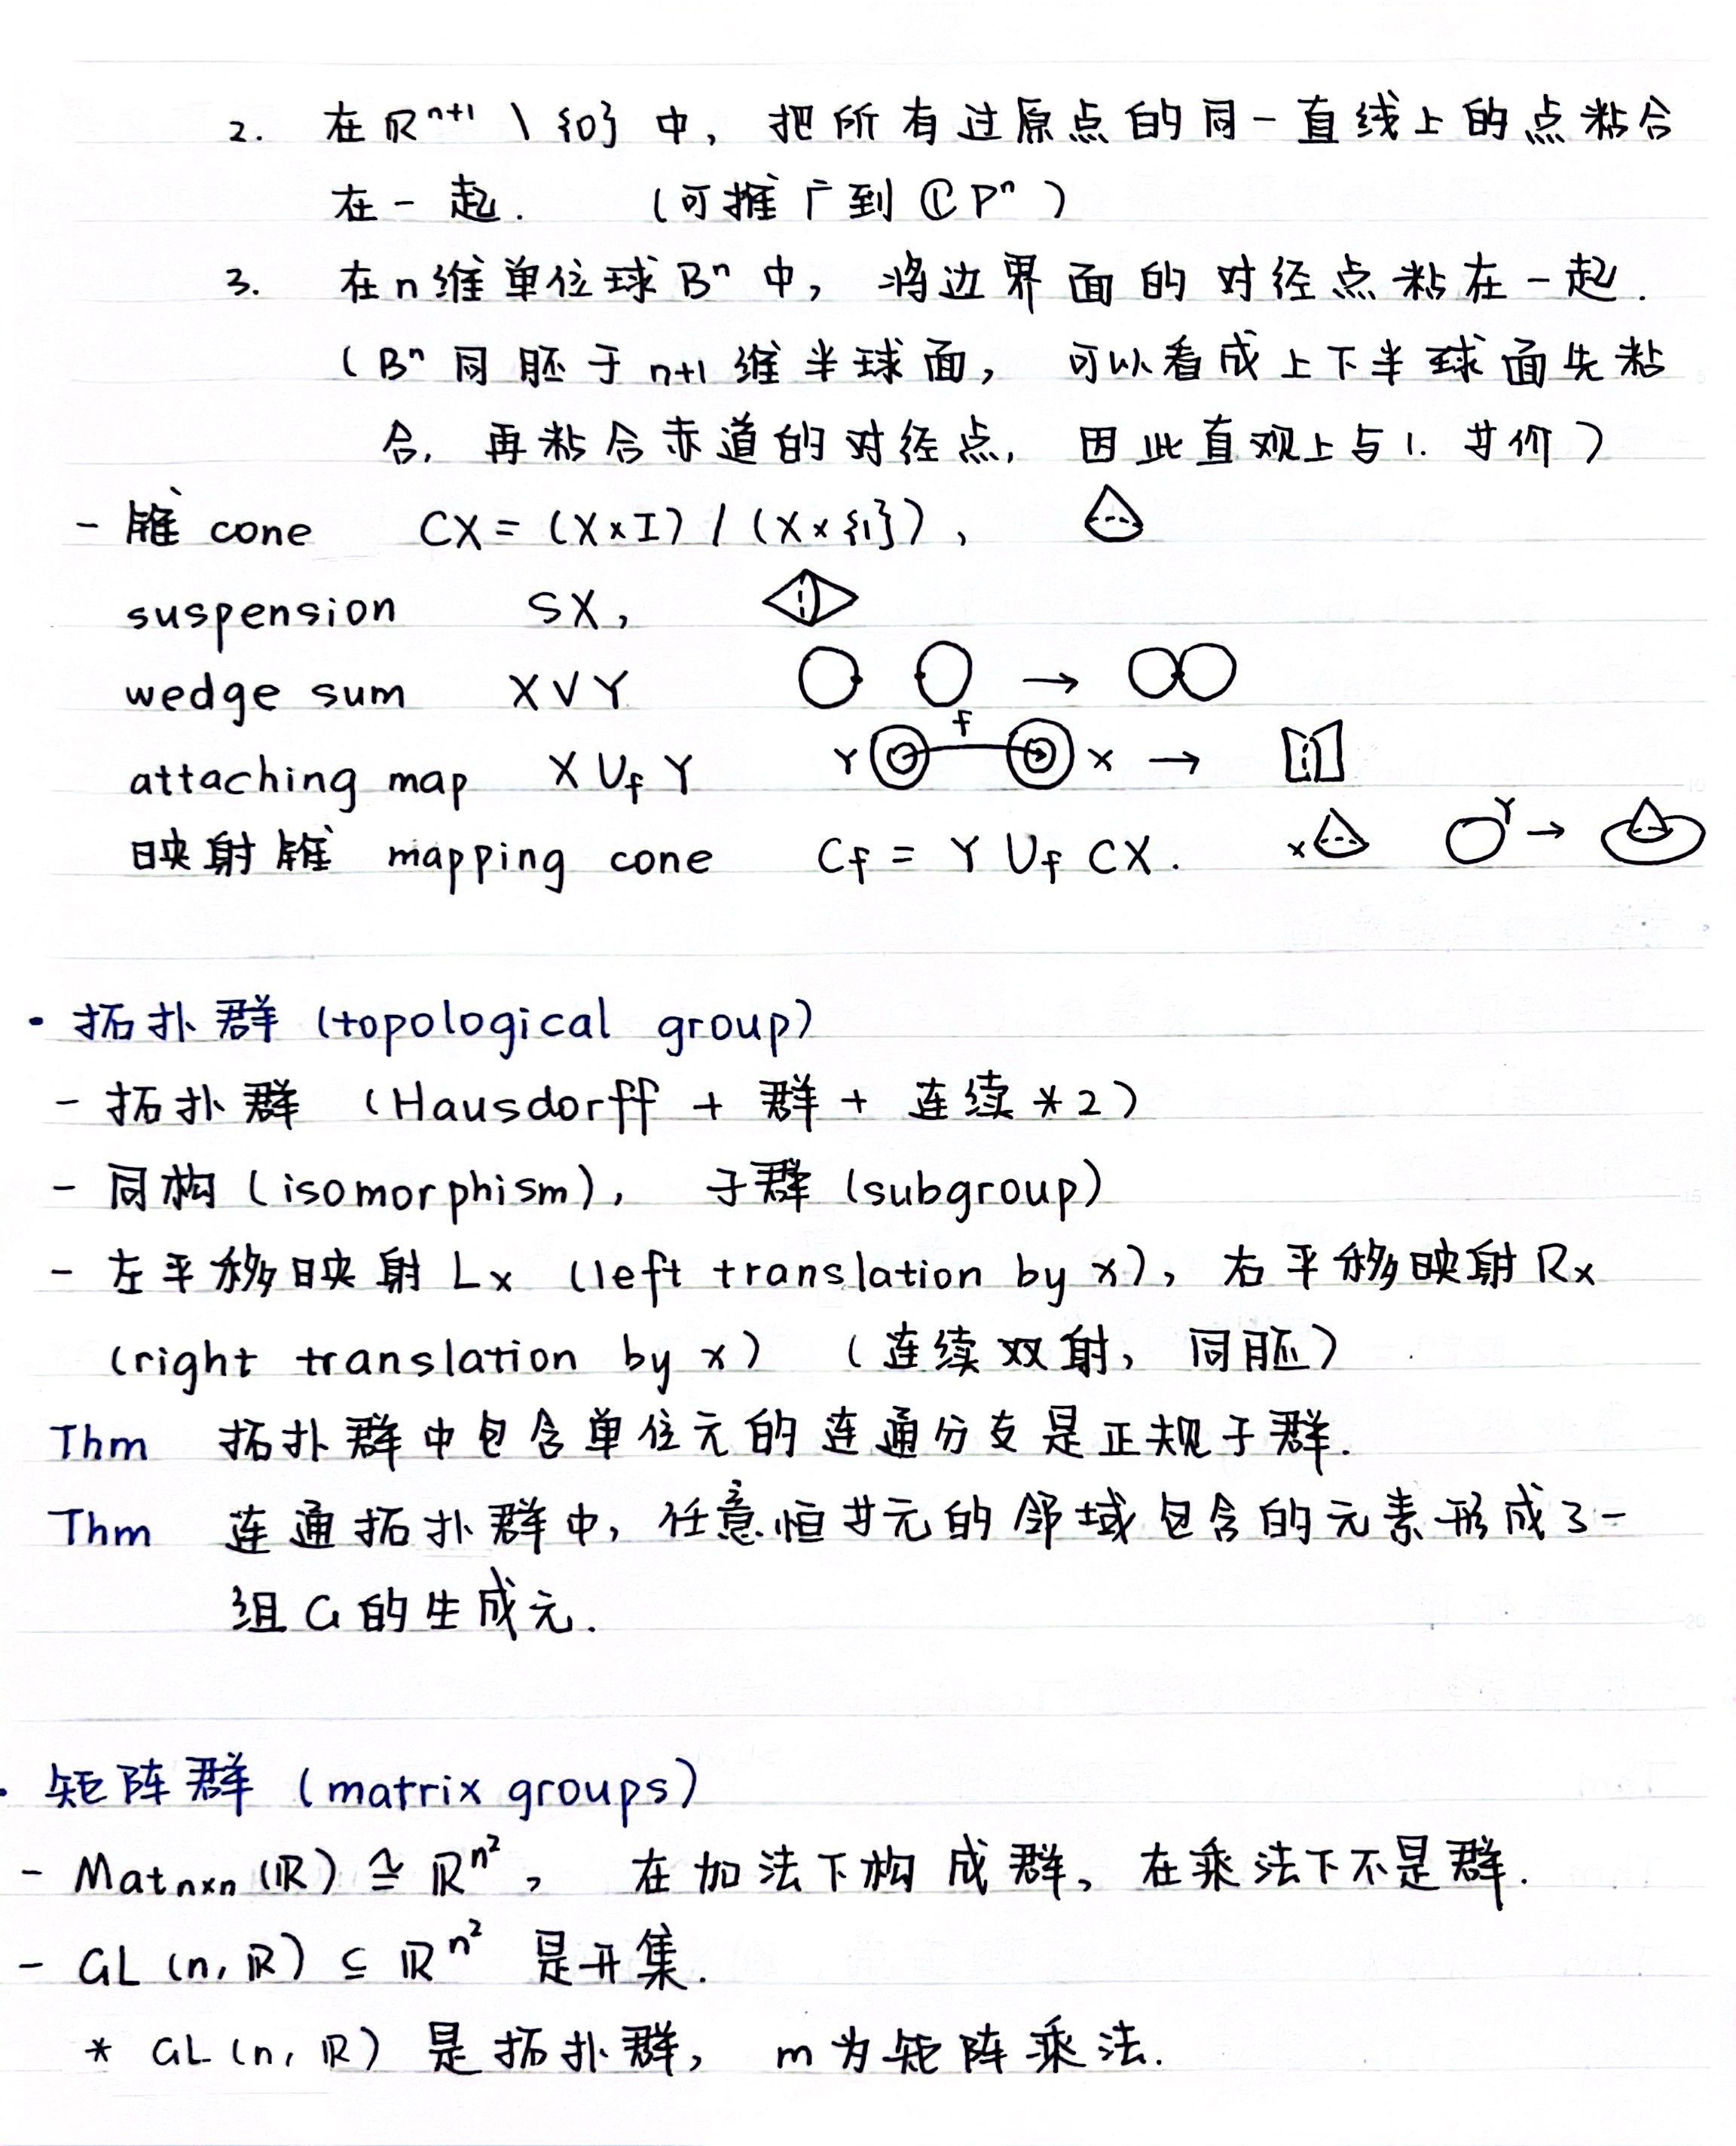 2. 在 ℝⁿ⁺¹ \ {0} 中, 把所有过原点的同一直线上的点粘合
在一起. (可推广到 ℂPⁿ)
3. 在n维单位球Bⁿ中, 将边界面的对径点粘在一起.
(Bⁿ同胚于n+1维半球面, 可以看成上下半球面先粘
合, 再粘合赤道的对径点, 因此直观上与1. 等价)
- 锥 cone CX = (X×I) / (X×{1}),
suspension SX,
wedge sum X∨Y →
attaching map X ∪f Y Y f X →
映射锥 mapping cone Cf = Y ∪f CX. X Y →
· 拓扑群 (topological group)
- 拓扑群 (Hausdorff + 群 + 连续*2)
- 同构 (isomorphism), 子群 (subgroup)
- 左平移映射 Lx (left translation by x), 右平移映射 Rx
(right translation by x) (连续双射, 同胚)
Thm 拓扑群中包含单位元的连通分支是正规子群.
Thm 连通拓扑群中, 任意恒等元的邻域包含的元素形成了一
组G的生成元.
· 矩阵群 (matrix groups)
- Matn×n (ℝ) ≅ ℝⁿ², 在加法下构成群, 在乘法下不是群.
- GL (n, ℝ) ⊆ ℝⁿ² 是开集.
* GL (n, ℝ) 是拓扑群, m为矩阵乘法.